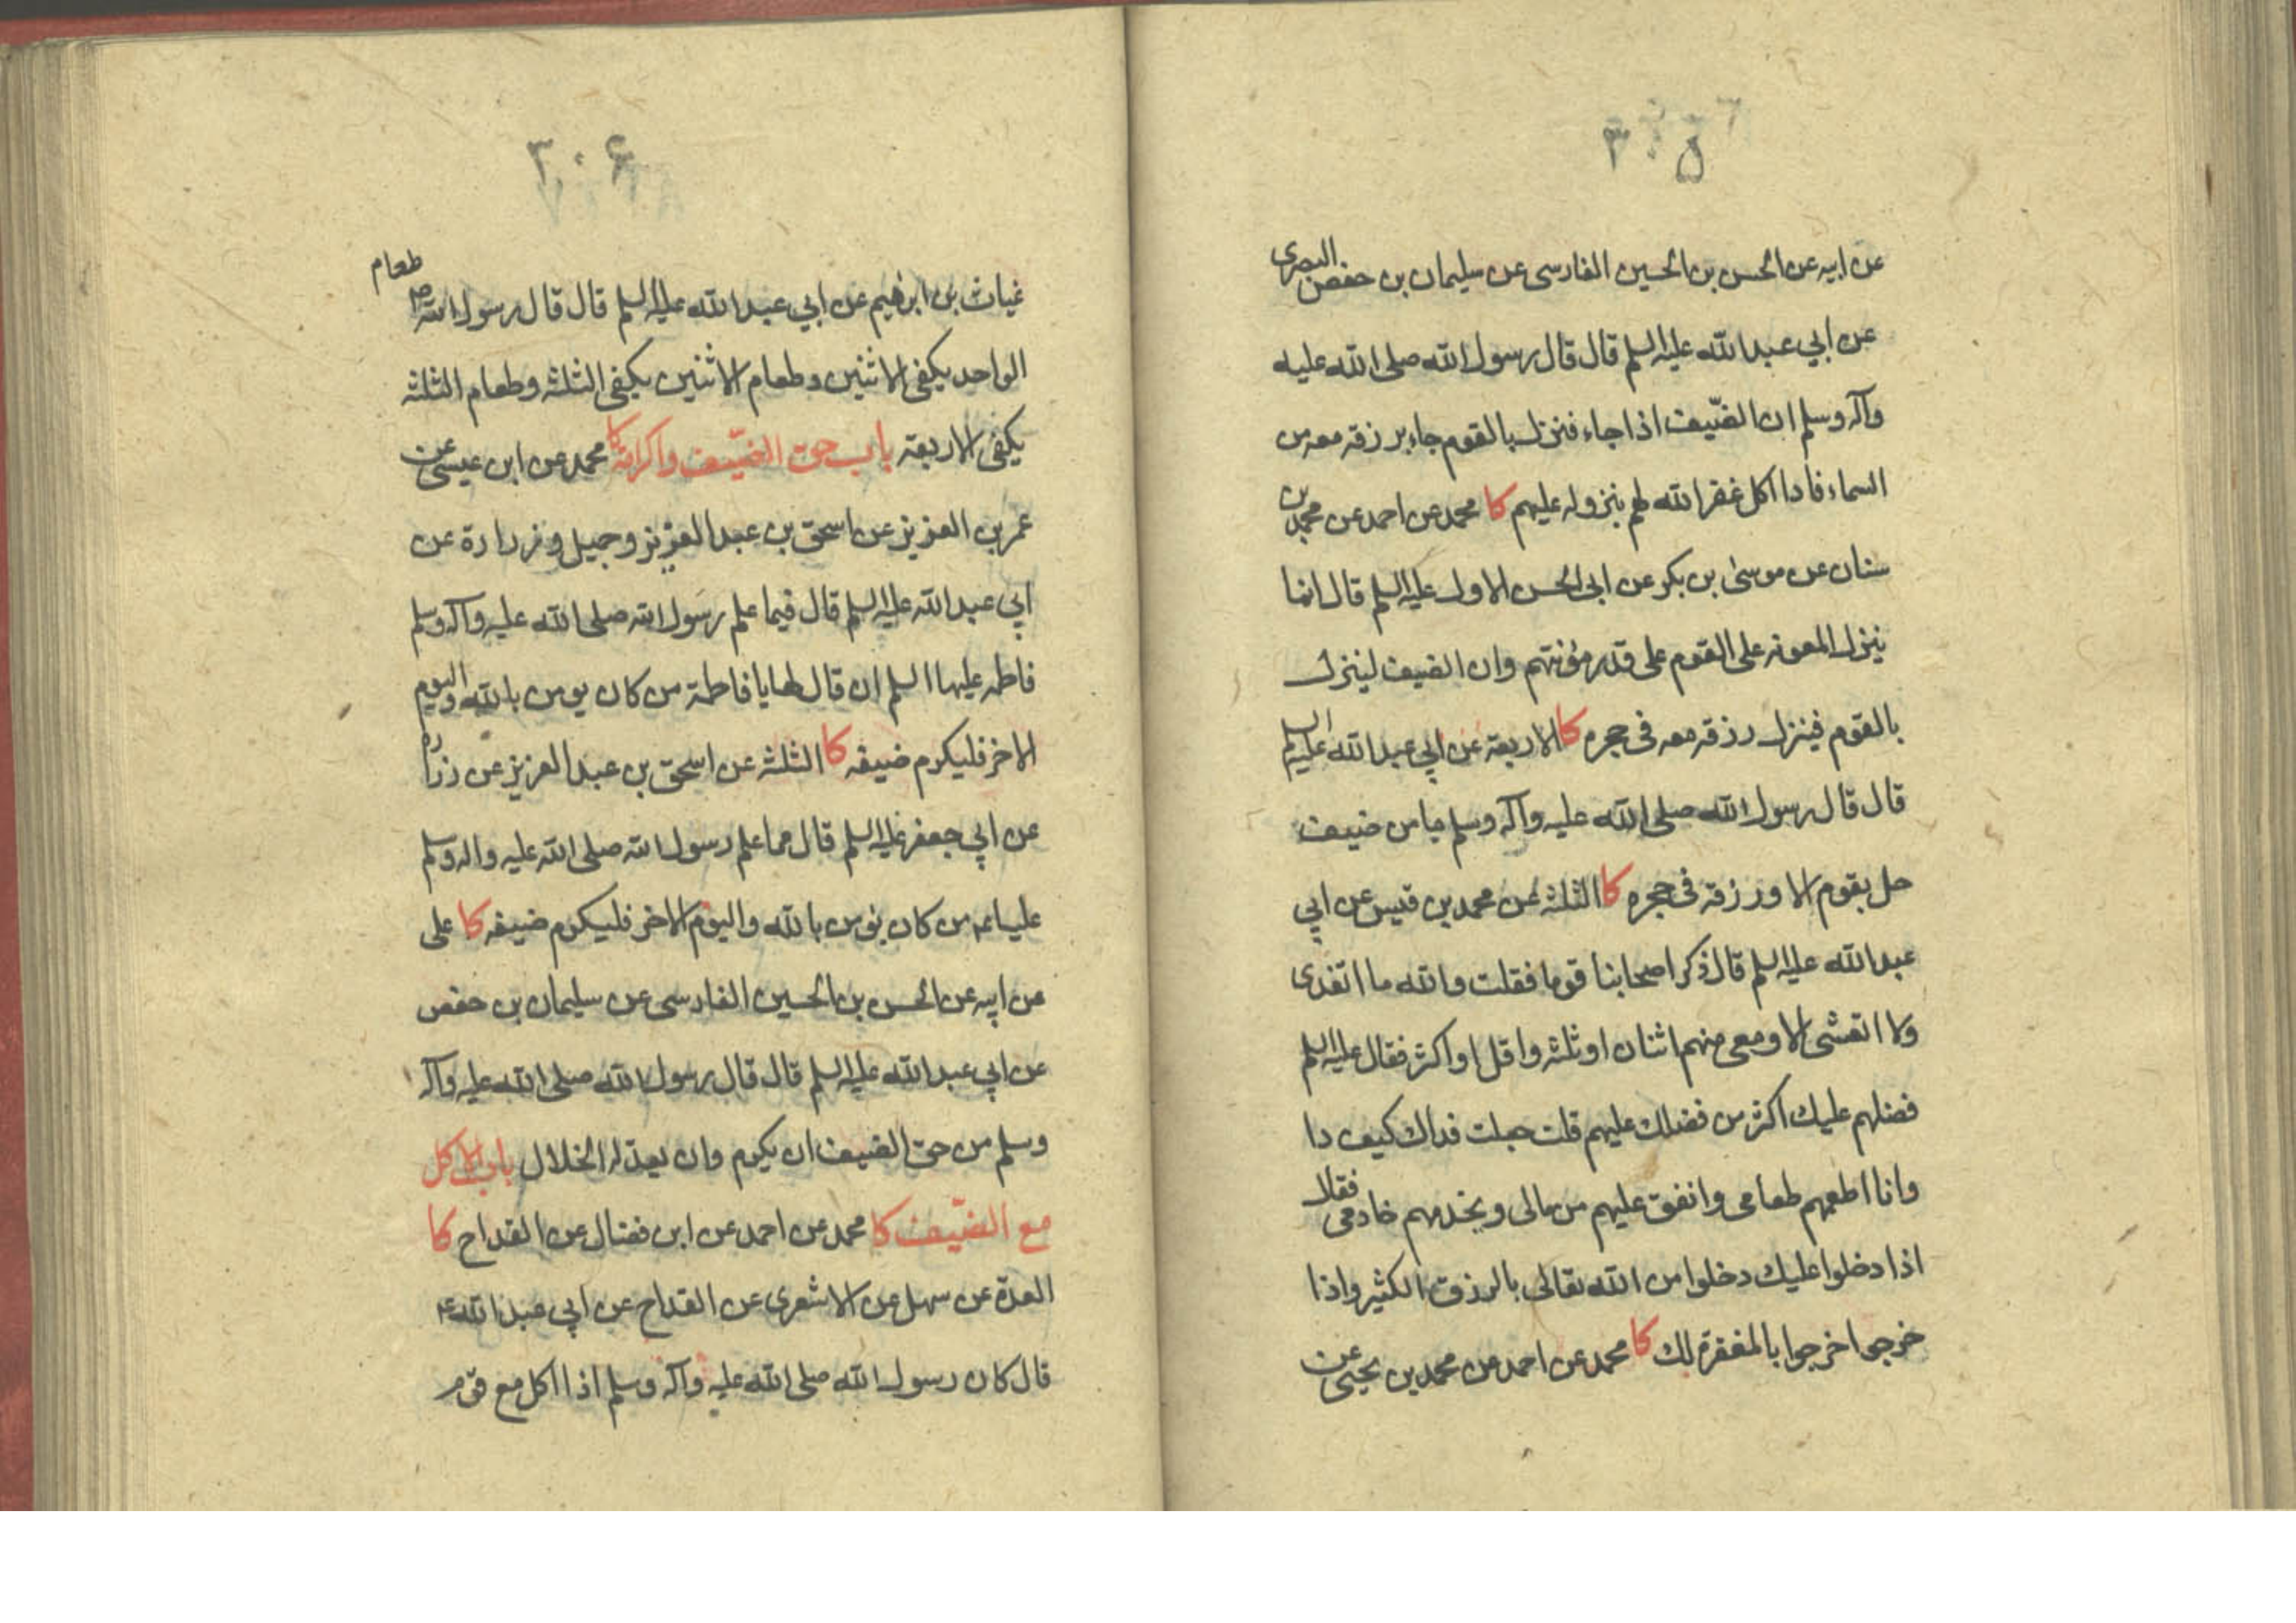 ٣٠٥
عن ابيه عن الحسن بن الحسين الفارسى عن سليمان بن حفص البصرى
عن ابي عبد الله عليه السلم قال قال رسول الله صلى الله عليه
وآله وسلم ان الضّيف اذا جاء فنزل بالقوم جاء برزقه معه من
السماء فاذا اكل غفر الله لهم بنزوله عليهم كا محمد عن احمد عن محمد بن
سنان عن موسى بن بكر عن ابي الحسن الاول عليه السلم قال انما
ينزل المعونه على القوم على قدر مؤنتهم وان الضيف لينزل
بالقوم فينزل رزقه معه فى حجره كا الاربعة عن ابي عبد الله عليه السلم
قال قال رسول الله صلى الله عليه وآله وسلم ما من ضيف
حل بقوم الا ورزقه فى حجره كا الثلثه عن محمد بن قيس عن ابي
عبد الله عليه السلم قال ذكر اصحابنا قوما فقلت والله ما اتغدى
ولا اتعشى الا ومعى منهم اثنان او ثلثه واقل او اكثر فقال عليه السلم
فضلهم عليك اكثر من فضلك عليهم قلت جعلت فداك كيف ذا
وانا اطعمهم طعامى وانفق عليهم من مالى ويخدمهم خادمى فقال
اذا دخلوا عليك دخلوا من الله تعالى بالرزق الكثير واذا
خرجوا خرجوا بالمغفرة لك كا محمد عن احمد عن محمد بن يحيى عن
٣٠۶
غياث بن ابرهيم عن ابي عبد الله عليه السلم قال قال رسول الله ص طعام
الواحد يكفى الاثنين وطعام الاثنين يكفى الثلثه وطعام الثلثه
يكفى الاربعة باب حق الضّيف واكرامه كا محمد عن ابن عيسى عن
عمر بن العزيز عن اسحق بن عبد العزيز وجميل وزرارة عن
ابي عبد الله عليه السلم قال فيما علم رسول الله صلى الله عليه وآله وسلم
فاطمه عليها السلم ان قال لها يا فاطمة من كان يومن بالله واليوم
الاخر فليكرم ضيفه كا الثلثه عن اسحق بن عبد العزيز عن زراره
عن ابي جعفر عليه السلم قال مما علم رسول الله صلى الله عليه واله وسلم
عليا ع من كان يؤمن بالله واليوم الاخر فليكرم ضيفه كا على
عن ابيه عن الحسن بن الحسين الفارسى عن سليمان بن حفص
عن ابي عبد الله عليه السلم قال قال رسول الله صلى الله عليه وآله
وسلم من حق الضيف ان يكرم وان يعدّ له الخلال باب الاكل
مع الضّيف كا محمد عن احمد عن ابن فضال عن القداح كا
العدة عن سهل عن الاشعرى عن القداح عن ابي عبد الله ع
قال كان رسول الله صلى الله عليه وآله وسلم اذا اكل مع قوم